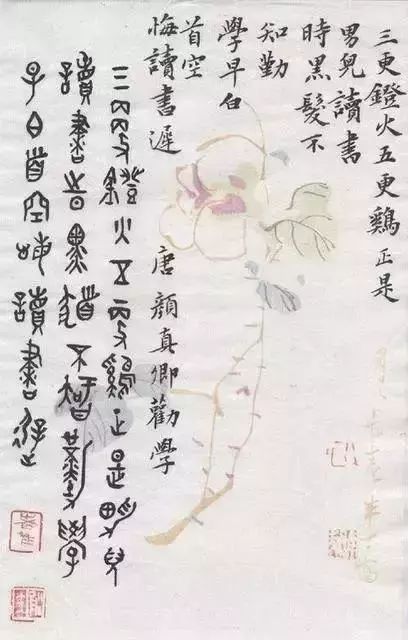 三更鐙火五更鷄正是
男兒讀書
時黑髮不
知勤
學早白
首空
悔讀書遲
唐 顏真卿勸學
三更鐙火五更鷄正是男兒
讀書時黑髮不知勤學
早白首空悔讀書遲